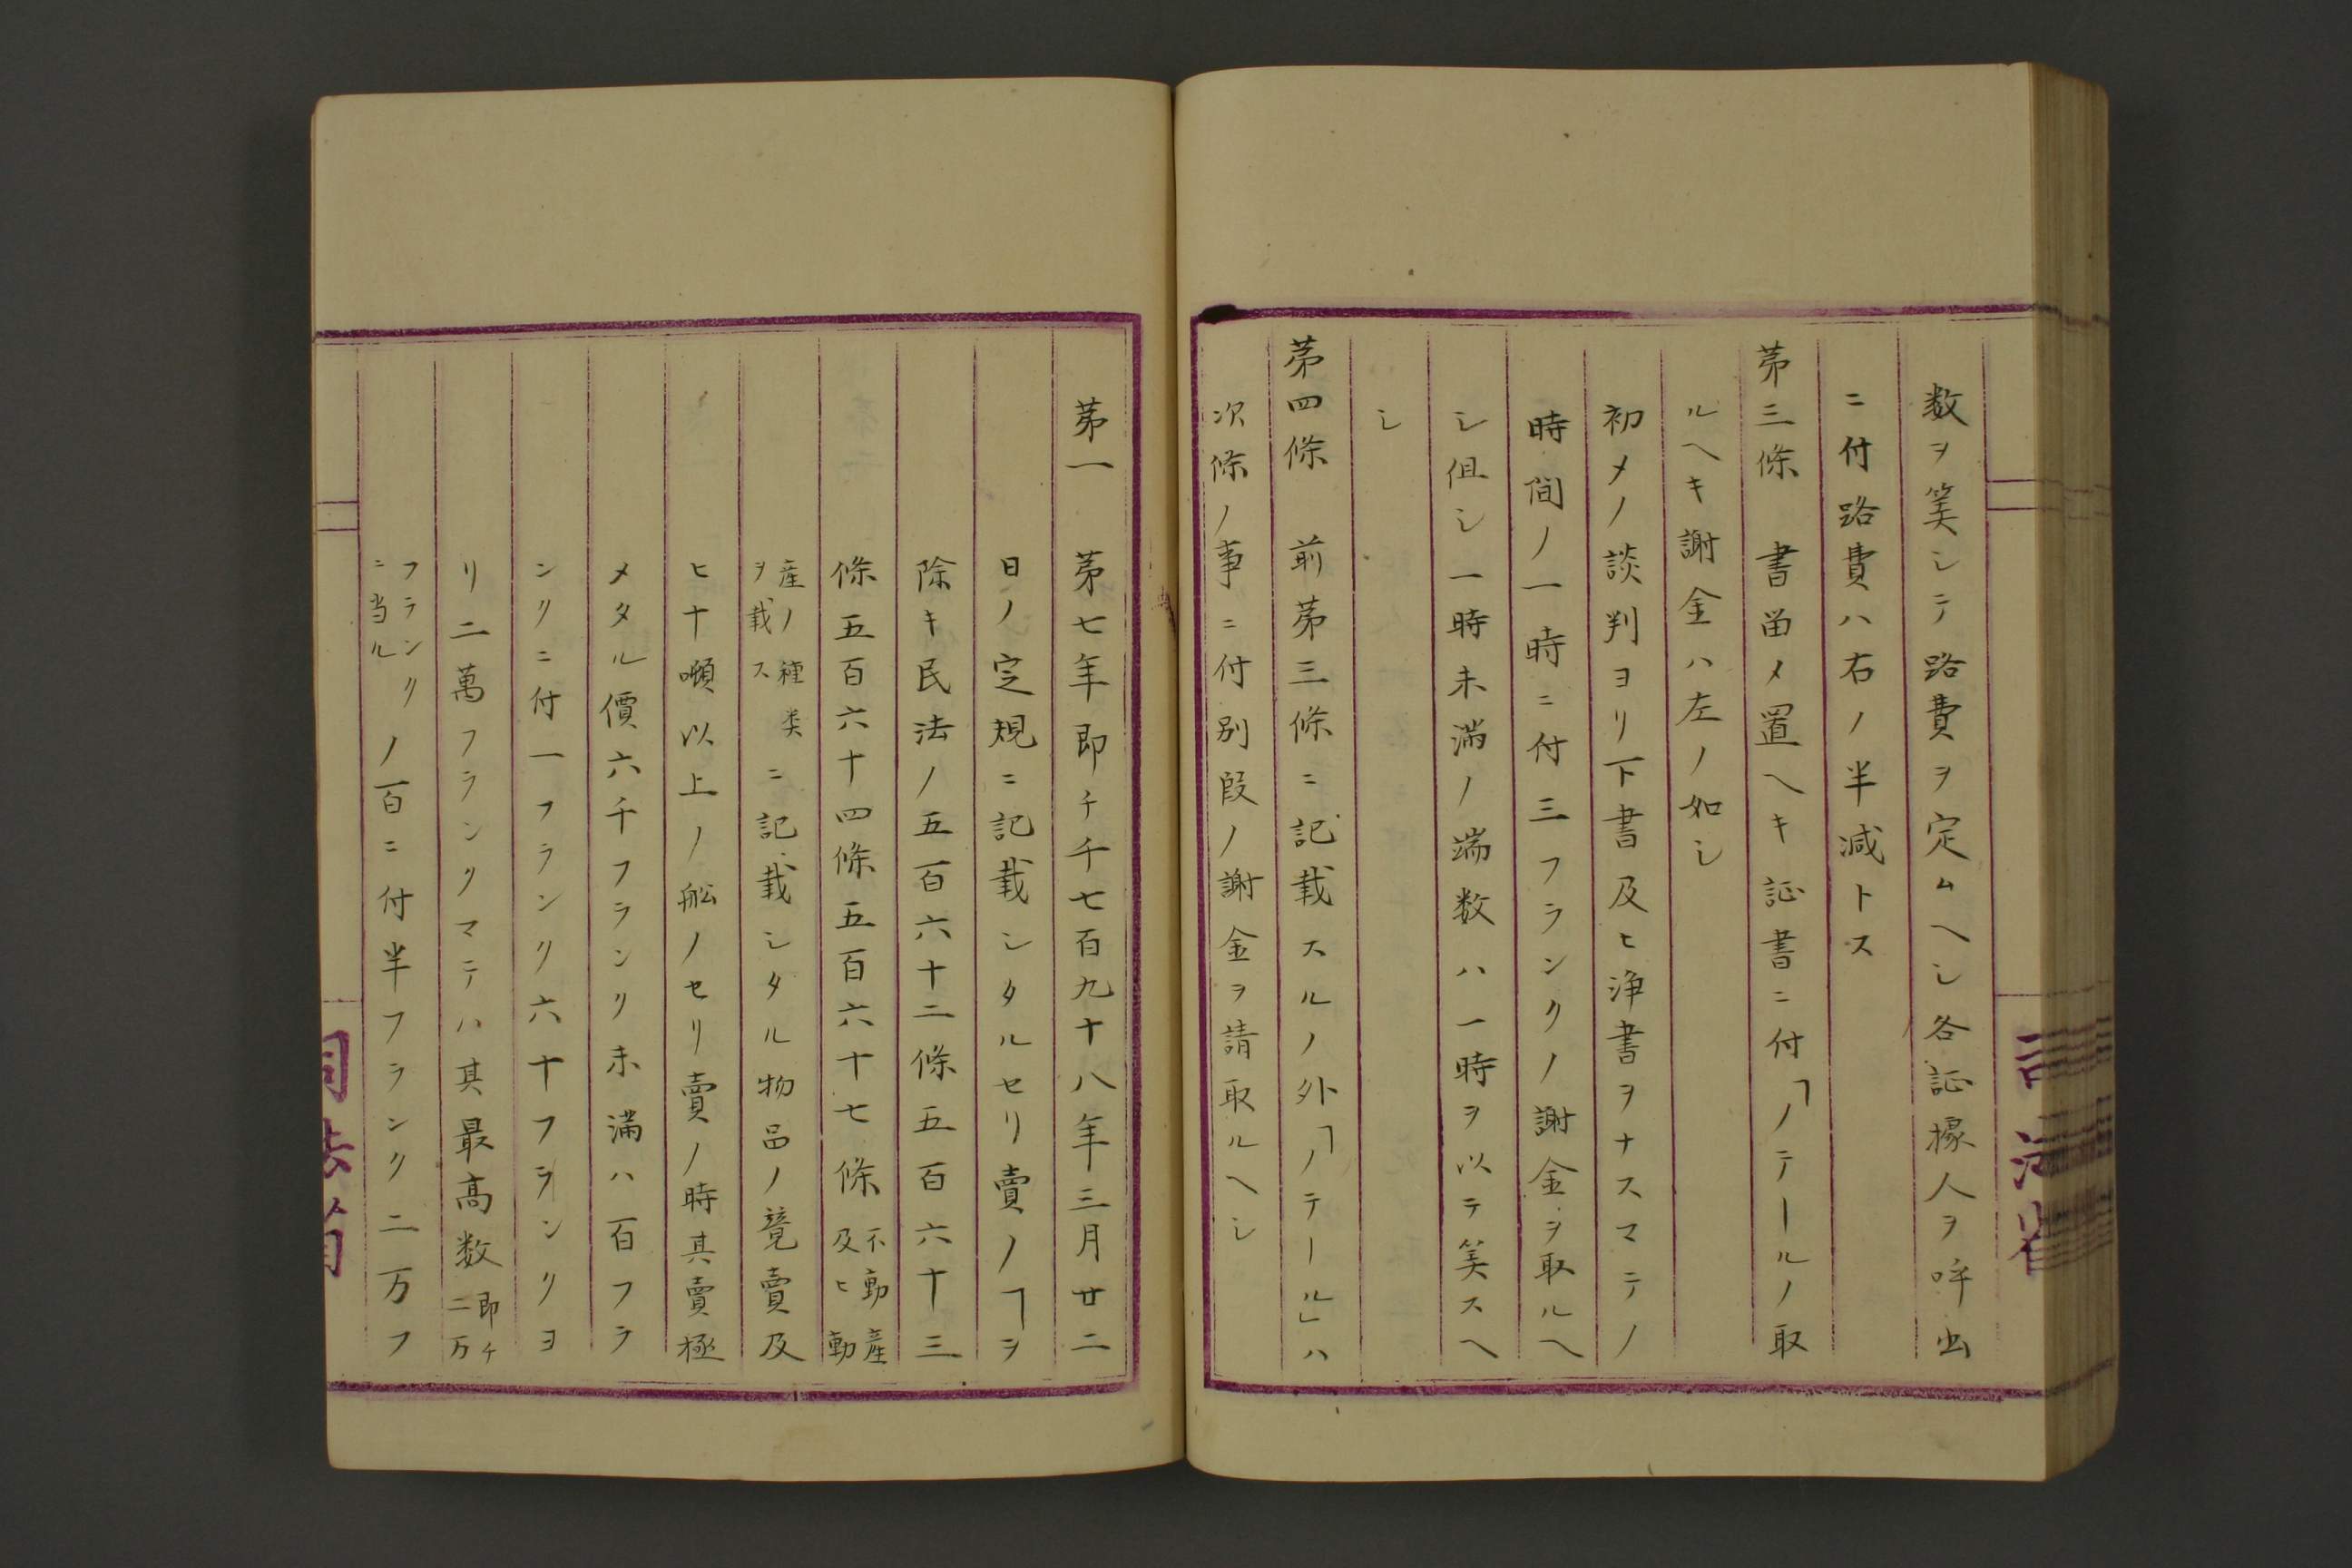 数ヲ算シテ路費ヲ定ムヘシ各証據人ヲ呼出
ニ付路費ハ右ノ半減トス
第三條　書畄メ置ヘキ証書ニ付「ノテールノ取
ルヘキ謝金ハ左ノ如シ
初メノ談判ヨリ下書及ヒ浄書ヲナスマテノ
時間ノ一時ニ付三フランクノ謝金ヲ取ルヘ
シ但シ一時未満ノ端数ハ一時ヲ以テ算スヘ
シ
第四條　前第三條ニ記載スルノ外「ノテール」ハ
次條ノ事ニ付別段ノ謝金ヲ請取ルヘシ
第一　第七年即チ千七百九十八年三月廿二
日ノ定規ニ記載シタルセリ賣ノヿヲ
除キ民法ノ五百六十二條五百六十三
條五百六十四條五百六十七條不動産及ヒ動
産ノ種类ヲ載スニ記載シタル物品ノ競賣及
ヒ十噸以上ノ舩ノセリ賣ノ時其賣極
メタル價六千フランク未満ハ百フラ
ンクニ付一フランク六十フランクヨ
リ二萬フランクマテハ其最高数即チ二万
フランクニ当ルノ百ニ付半フランク二万フ
司法省
司法省